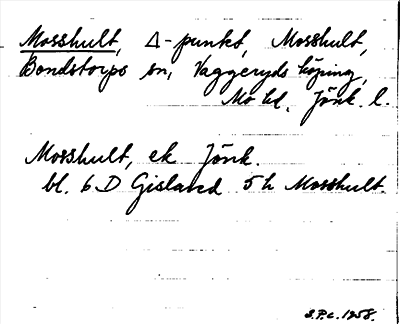 Mosshult, Δ-punkt, Mosshult,
Bondstorps sn, Vaggeryds köping,
Mo hd. Jönk. l.
Mosshult, ek Jönk.
bl. 6 D Gislaved 5 h Mosshult.
S.P.c. 1958.